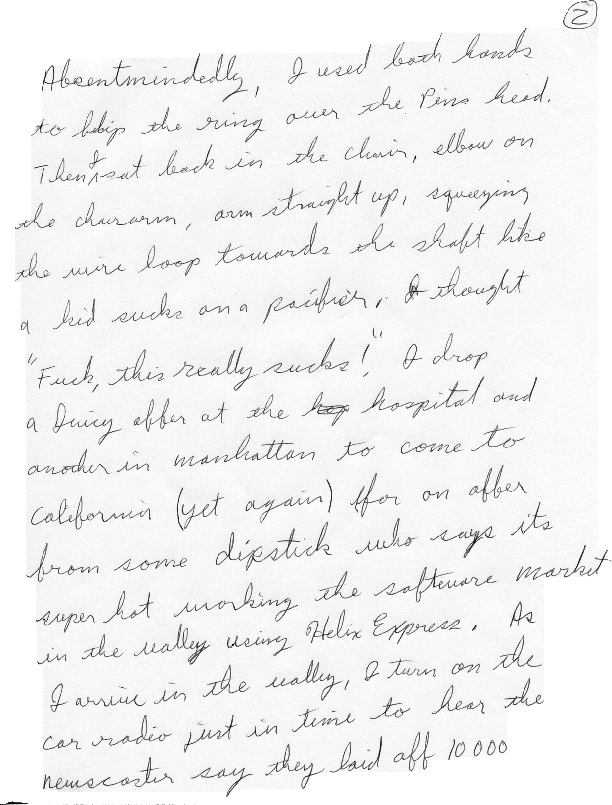 2
Absentmindedly, I used both hands
to bbip the ring over the Pens head.
Then I sat back in the chair, elbow on
the chairarm, arm straight up, squeezing
the wire loop towards the shaft like
a kid sucks on a pacifier, I thought
"Fuck, this really sucks!" I drop
a Juicy offer at the hop hospital and
another in manhattan to come to
California (yet again) for an offer
from some dipstick who says its
super hot working the software market
in the valley using Helix Express. As
I arrive in the valley, I turn on the
car radio just in time to hear the
newscaster say they laid off 10 000